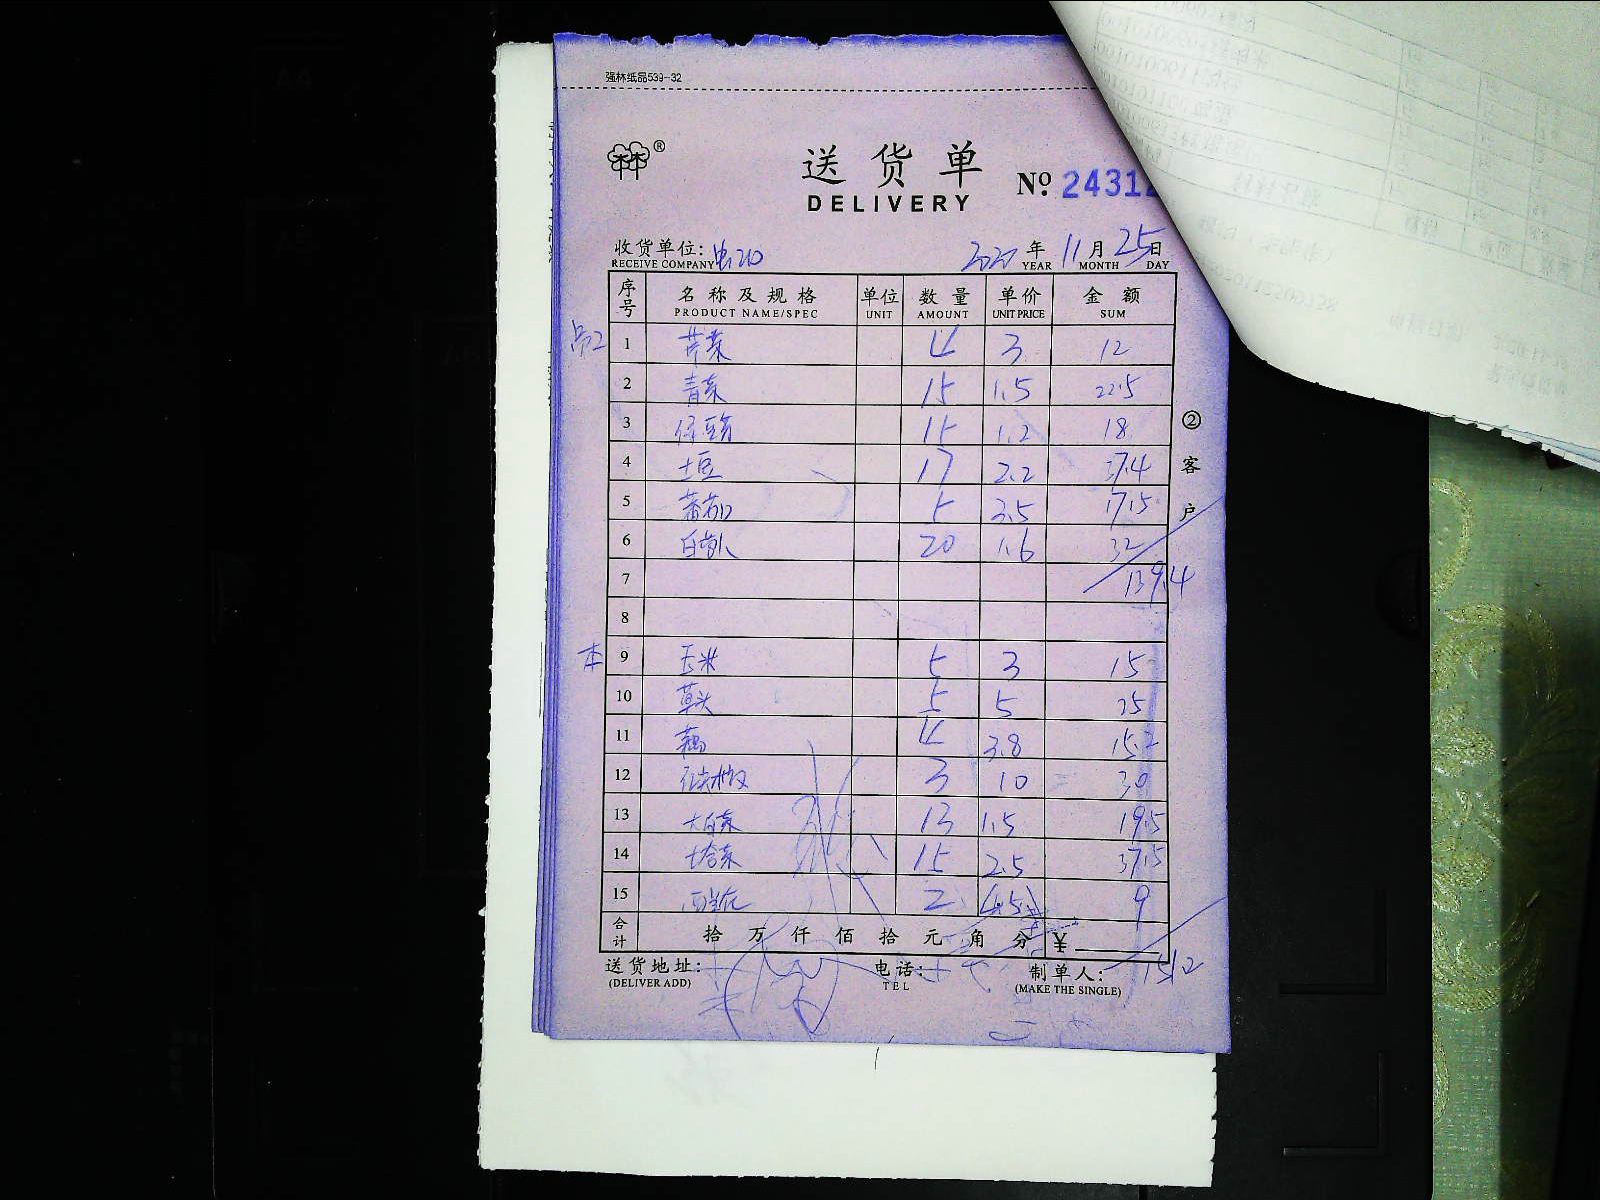 强林纸品539-32
®
送货单
DELIVERY
No. 2431
收货单位:
RECEIVE COMPANY
2020 年 11 月 25 日
YEAR MONTH DAY
序号 名称及规格 单位 数量 单价 金额
PRODUCT NAME/SPEC UNIT AMOUNT UNIT PRICE SUM
1 芹菜 4 3 12
2 青菜 15 1.5 22.5
3 绿豆芽 15 1.2 18
4 土豆 17 2.2 37.4
5 蕃茄 5 3.5 17.5
6 白萝卜 20 1.6 32
7 139.4
8
本 9 玉米 5 3 15
10 草头 5 5 25
11 藕 4 3.8 15.2
12 3 10 30
13 大白菜 13 1.5 19.5
14 塔菜 15 2.5 37.5
15 西兰花 2 4.5 9
合计 拾 万 仟 佰 拾 元 角 分 ¥
151.2
送货地址: 电话: 制单人:
(DELIVER ADD) TEL (MAKE THE SINGLE)
② 客户